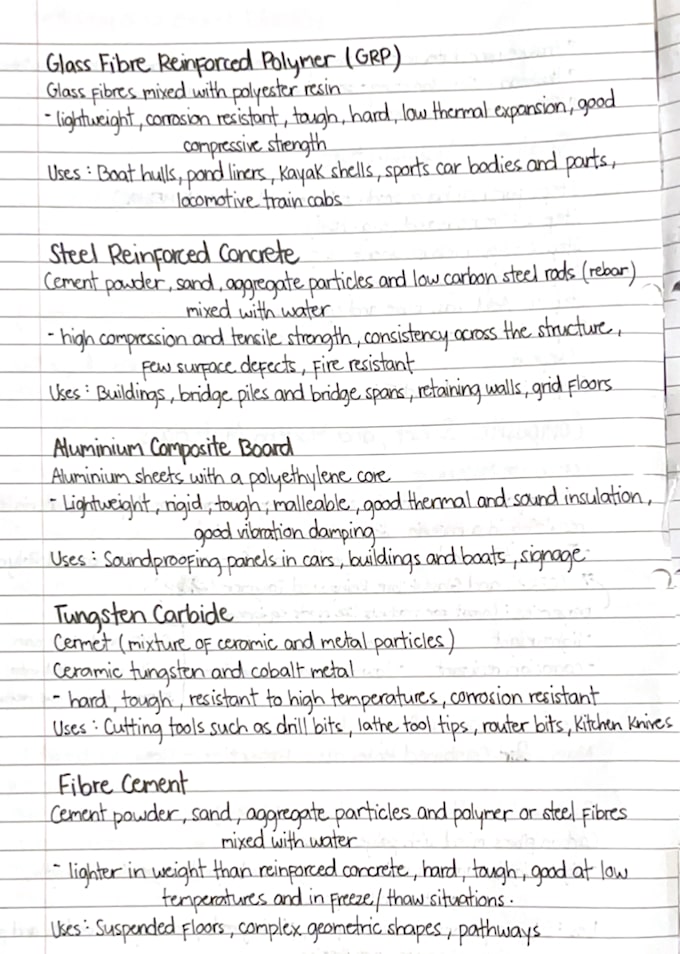 Glass Fibre Reinforced Polymer (GRP)
Glass fibres mixed with polyester resin
- lightweight, corrosion resistant, tough, hard, low thermal expansion, good
compressive strength
Uses: Boat hulls, pond liners, Kayak shells, sports car bodies and parts,
locomotive train cabs
Steel Reinforced Concrete
Cement powder, sand, aggregate particles and low carbon steel rods (rebar)
mixed with water
- high compression and tensile strength, consistency across the structure,
few surface defects, fire resistant
Uses: Buildings, bridge piles and bridge spans, retaining walls, grid floors
Aluminium Composite Board
Aluminium sheets with a polyethylene core
- Lightweight, rigid, tough, malleable, good thermal and sound insulation,
good vibration damping
Uses: Soundproofing panels in cars, buildings and boats, signage
Tungsten Carbide
Cermet (mixture of ceramic and metal particles)
Ceramic tungsten and cobalt metal
- hard, tough, resistant to high temperatures, corrosion resistant
Uses: Cutting tools such as drill bits, lathe tool tips, router bits, Kitchen Knives
Fibre Cement
Cement powder, sand, aggregate particles and polymer or steel fibres
mixed with water
- lighter in weight than reinforced concrete, hard, tough, good at low
temperatures and in freeze/thaw situations.
Uses: Suspended floors, complex geometric shapes, pathways